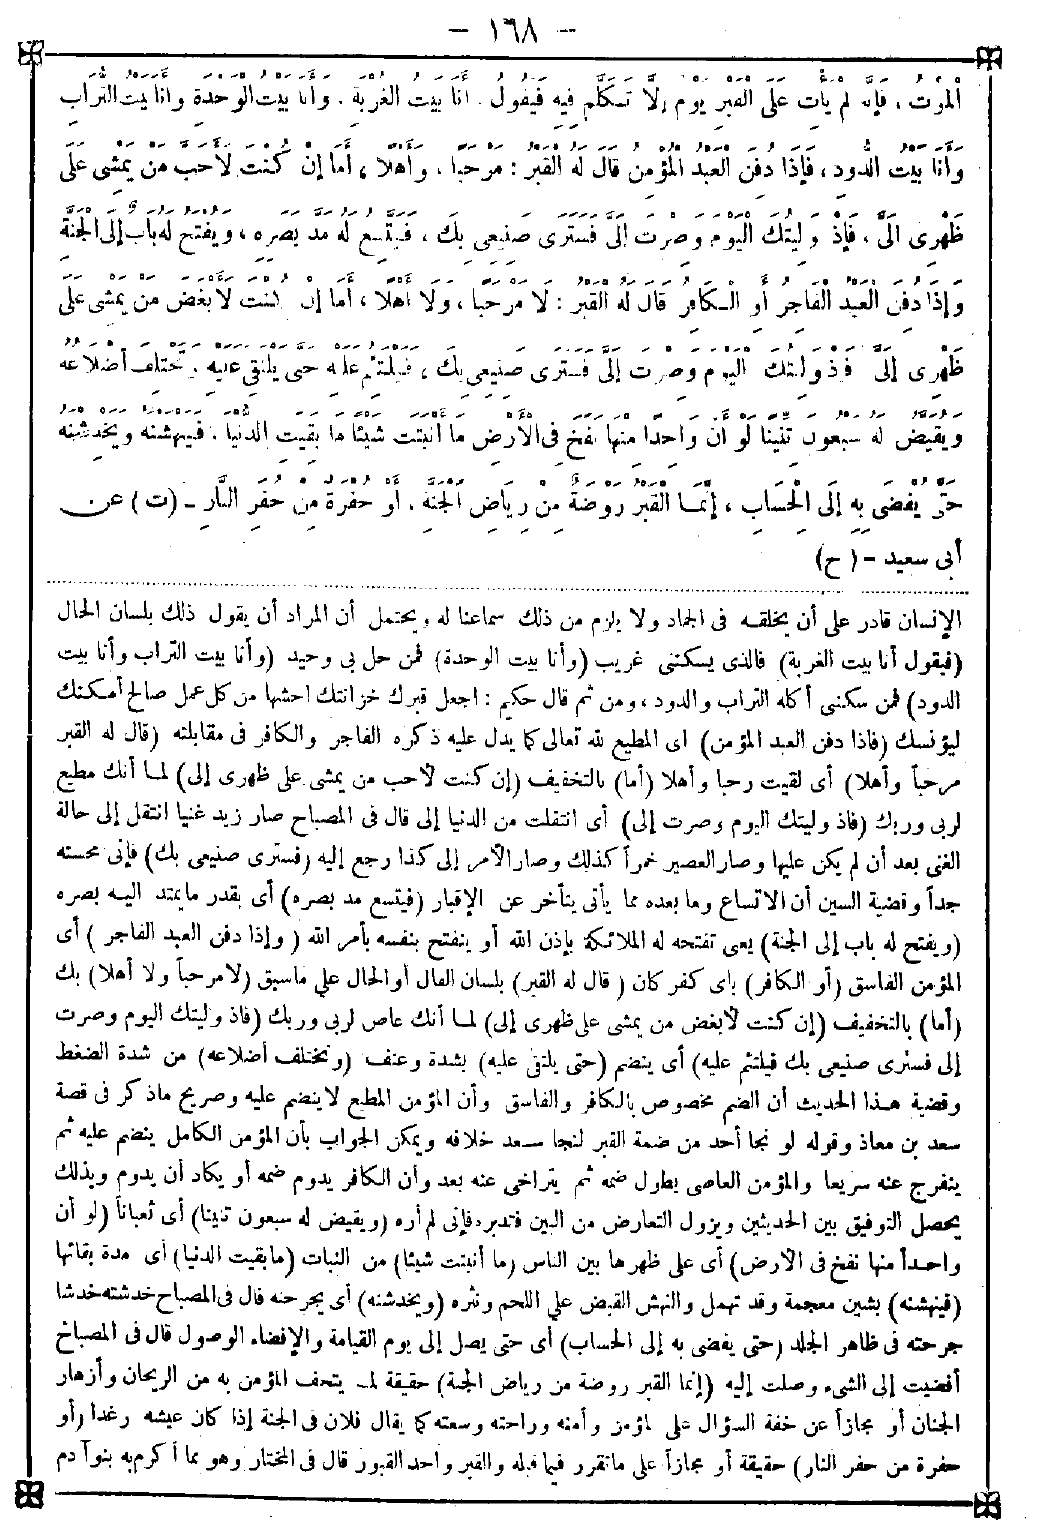 – ١٦٨ –
الْمَوْتُ ، فَإِنَّهُ لَمْ يَأْتِ عَلَى الْقَبْرِ يَوْمٌ إِلَّا تَكَلَّمَ فِيهِ فَيَقُولُ : أَنَا بَيْتُ الْغُرْبَةِ . وَأَنَا بَيْتُ الْوَحْدَةِ وَأَنَا بَيْتُ التُّرَابِ
وَأَنَا بَيْتُ الدُّودِ ، فَإِذَا دُفِنَ الْعَبْدُ الْمُؤْمِنُ قَالَ لَهُ الْقَبْرُ : مَرْحَبًا ، وَأَهْلًا ، أَمَا إِنْ كُنْتَ لَأَحَبَّ مَنْ يَمْشِى عَلَى
ظَهْرِى إِلَىَّ ، فَإِذْ وَلِيتُكَ الْيَوْمَ وَصِرْتَ إِلَىَّ فَسَتَرَى صَنِيعِى بِكَ ، فَيَتَّسِعُ لَهُ مَدَّ بَصَرِهِ ، وَيُفْتَحُ لَهُ بَابٌ إِلَى الْجَنَّةِ
وَإِذَا دُفِنَ الْعَبْدُ الْفَاجِرُ أَوِ الْكَافِرُ قَالَ لَهُ الْقَبْرُ : لَا مَرْحَبًا ، وَلَا أَهْلًا ، أَمَا إِنْ كُنْتَ لَأَبْغَضَ مَنْ يَمْشِى عَلَى
ظَهْرِى إِلَىَّ فَإِذْ وَلِيتُكَ الْيَوْمَ وَصِرْتَ إِلَىَّ فَسَتَرَى صَنِيعِى بِكَ ، فَيَلْتَئِمُ عَلَيْهِ حَتَّى يَلْتَقِىَ عَلَيْهِ وَتَخْتَلِفَ أَضْلَاعُهُ
وَيُقَيَّضُ لَهُ سَبْعُونَ تِنِّينًا لَوْ أَنَّ وَاحِدًا مِنْهَا نَفَخَ فِى الْأَرْضِ مَا أَنْبَتَتْ شَيْئًا مَا بَقِيَتِ الدُّنْيَا . فَيَنْهَشْنَهُ وَيَخْدِشْنَهُ
حَتَّى يُفْضَى بِهِ إِلَى الْحِسَابِ ، إِنَّمَا الْقَبْرُ رَوْضَةٌ مِنْ رِيَاضِ الْجَنَّةِ . أَوْ حُفْرَةٌ مِنْ حُفَرِ النَّارِ – (ت) عن
أبى سعيد – (ح)
الإنسان قادر على أن يخلقه فى الجماد ولا يلزم من ذلك سماعنا له ويحتمل أن المراد أن يقول ذلك بلسان الحال
(فيقول أنا بيت الغربة) فالذى يسكننى غريب (وأنا بيت الوحدة) فمن حل بى وحيد (وأنا بيت التراب وأنا بيت
الدود) فمن سكننى أكله التراب والدود ، ومن ثم قال حكيم : اجعل قبرك خزانتك احشها من كل عمل صالح أمكنك
ليؤنسك (فاذا دفن العبد المؤمن) اى المطيع لله تعالى كما يدل عليه ذكره الفاجر والكافر فى مقابلته (قال له القبر
مرحباً وأهلا) أى لقيت رحبا وأهلا (أما) بالتخفيف (إن كنت لأحب من يمشى على ظهرى إلى) لما أنك مطيع
لربى وربك (فاذ وليتك اليوم وصرت إلى) أى انتقلت من الدنيا إلى قال فى المصباح صار زيد غنيا انتقل إلى حالة
الغنى بعد أن لم يكن عليها وصار العصير خمراً كذلك وصار الأمر إلى كذا رجع إليه (فسترى صنيعى بك) فإنى محسنه
جداً وقضية السين أن الاتساع وما بعده مما يأتى يتأخر عن الإقبار (فيتسع مد بصره) أى بقدر مايمتد اليه بصره
(ويفتح له باب إلى الجنة) يعى تفتحه له الملائكة بإذن الله أو ينفتح بنفسه بأمر الله (وإذا دفن العبد الفاجر) أى
المؤمن الفاسق (أو الكافر) باى كفر كان (قال له القبر) بلسان القال أو الحال على ماسبق (لامرحباً ولا أهلا) بك
(أما) بالتخفيف (إن كنت لأبغض من يمشى على ظهرى إلى) لما أنك عاص لربى وربك (فاذ وليتك اليوم وصرت
إلى فسترى صنيعى بك فيلتئم عليه) أى ينضم (حتى يلتقى عليه) بشدة وعنف (وتختلف أضلاعه) من شدة الضغط
وقضية هذا الحديث أن الضم مخصوص بالكافر والفاسق وأن المؤمن المطيع لاينضم عليه وصريح ماذكر فى قصة
سعد بن معاذ وقوله لو نجا أحد من ضمة القبر لنجا سعد خلافه ويمكن الجواب بأن المؤمن الكامل ينضم عليه ثم
ينفرج عنه سريعا والمؤمن العاصى يطول ضمه ثم يتراخى عنه بعد وأن الكافر يدوم ضمه أو يكاد أن يدوم وبذلك
يحصل التوفيق بين الحديثين ويزول التعارض من البين فتدبره فإنى لم أره (ويقيض له سبعون تنينا) أى ثعباناً (لو أن
واحداً منها نفخ فى الأرض) أى على ظهرها بين الناس (ما أنبتت شيئا) من النبات (مابقيت الدنيا) أى مدة بقائها
(فينهشنه) بشين معجمة وقد تهمل والنهش القبض على اللحم ونثره (ويخدشنه) أى يجرحنه قال فى المصباح خدشته خدشا
جرحته فى ظاهر الجلد (حتى يفضى به إلى الحساب) أى حتى يصل إلى يوم القيامة والإفضاء الوصول قال فى المصباح
أفضيت إلى الشىء وصلت إليه (إنما القبر روضة من رياض الجنة) حقيقة لما يتحف المؤمن به من الريحان وأزهار
الجنان أو مجازاً عن خفة السؤال على المؤمن وأمنه وراحته وسعته كما يقال فلان فى الجنة إذا كان عيشه رغدا (أو
حفرة من حفر النار) حقيقة أو مجازاً على ماتقرر فيما قبله والقبر واحد القبور قال فى المختار وهو مما أكرم به بنوآدم